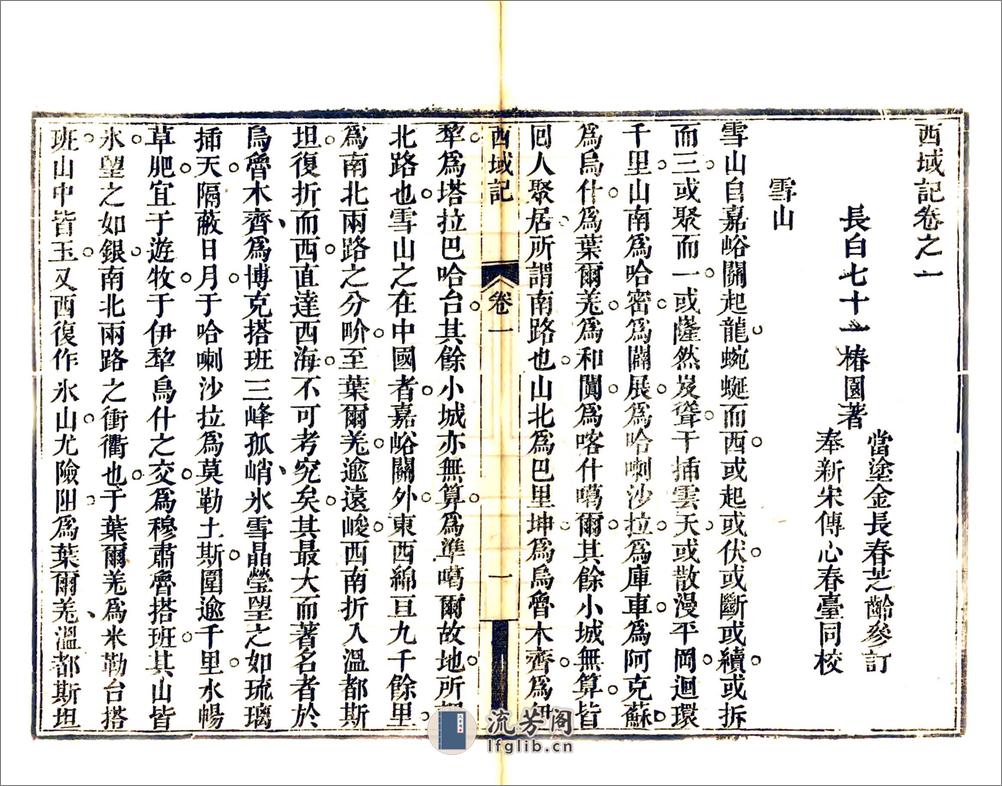 西域記卷之一
長白七十一椿園著
當塗金長春芝齡參訂
奉新宋傳心春臺同校
雪山
雪山自嘉峪關起龍蜿蜒而西或起或伏或斷或續或拆
而三或聚而一或薩然岌聳干插雲天或散漫平岡迴環
千里山南爲哈密爲闢展爲哈喇沙拉爲庫車爲阿克蘇
爲烏什爲葉爾羌爲和闐爲喀什噶爾其餘小城無算皆
囘人聚居所謂南路也山北爲巴里坤爲烏魯木齊爲伊
西域記
卷一
一
犂爲塔拉巴哈台其餘小城亦無算爲準噶爾故地所
北路也雪山之在中國者嘉峪關外東西綿亘九千餘里
爲南北兩路之分畍至葉爾羌逾遠峻西南折入溫都斯
坦復折而西直達西海不可考究矣其最大而著名者於
烏魯木齊爲博克搭班三峰孤峭氷雪晶瑩望之如琉璃
插天隔蔽日月于哈喇沙拉爲莫勒土斯圍逾千里水暢
草肥宜于遊牧于伊犂烏什之交爲穆肅魯搭班其山皆
氷望之如銀南北兩路之衝衢也于葉爾羌爲米勒台搭
班山中皆玉又西復作氷山尤險阻爲葉爾羌溫都斯坦
流芳阁
lfglib.cn